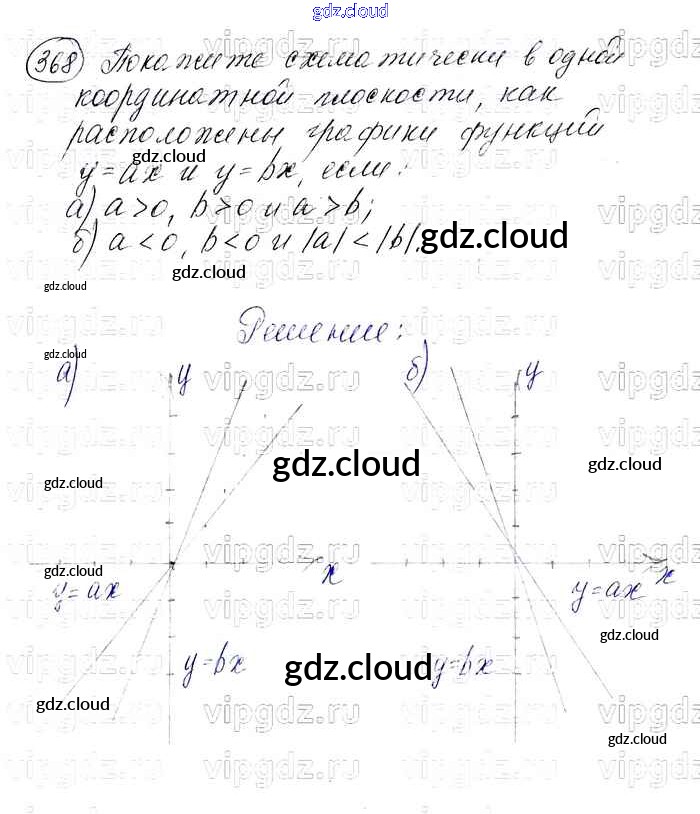 gdz.cloud
368 Покажите схематически в одной
координатной плоскости, как
расположены графики функций
gdz.cloud
y = ax и y = bx, если:
а) a > 0, b > 0 и a > b;
б) a < 0, b < 0 и |a| < |b|.
gdz.cloud
gdz.cloud
gdz.cloud
Решение:
gdz.cloud
а) y б) y
gdz.cloud
gdz.cloud
gdz.cloud
gdz.cloud
x x
y = ax y = ax
gdz.cloud
y = bx y = bx
gdz.cloud
gdz.cloud
gdz.cloud
vipgdz.ru